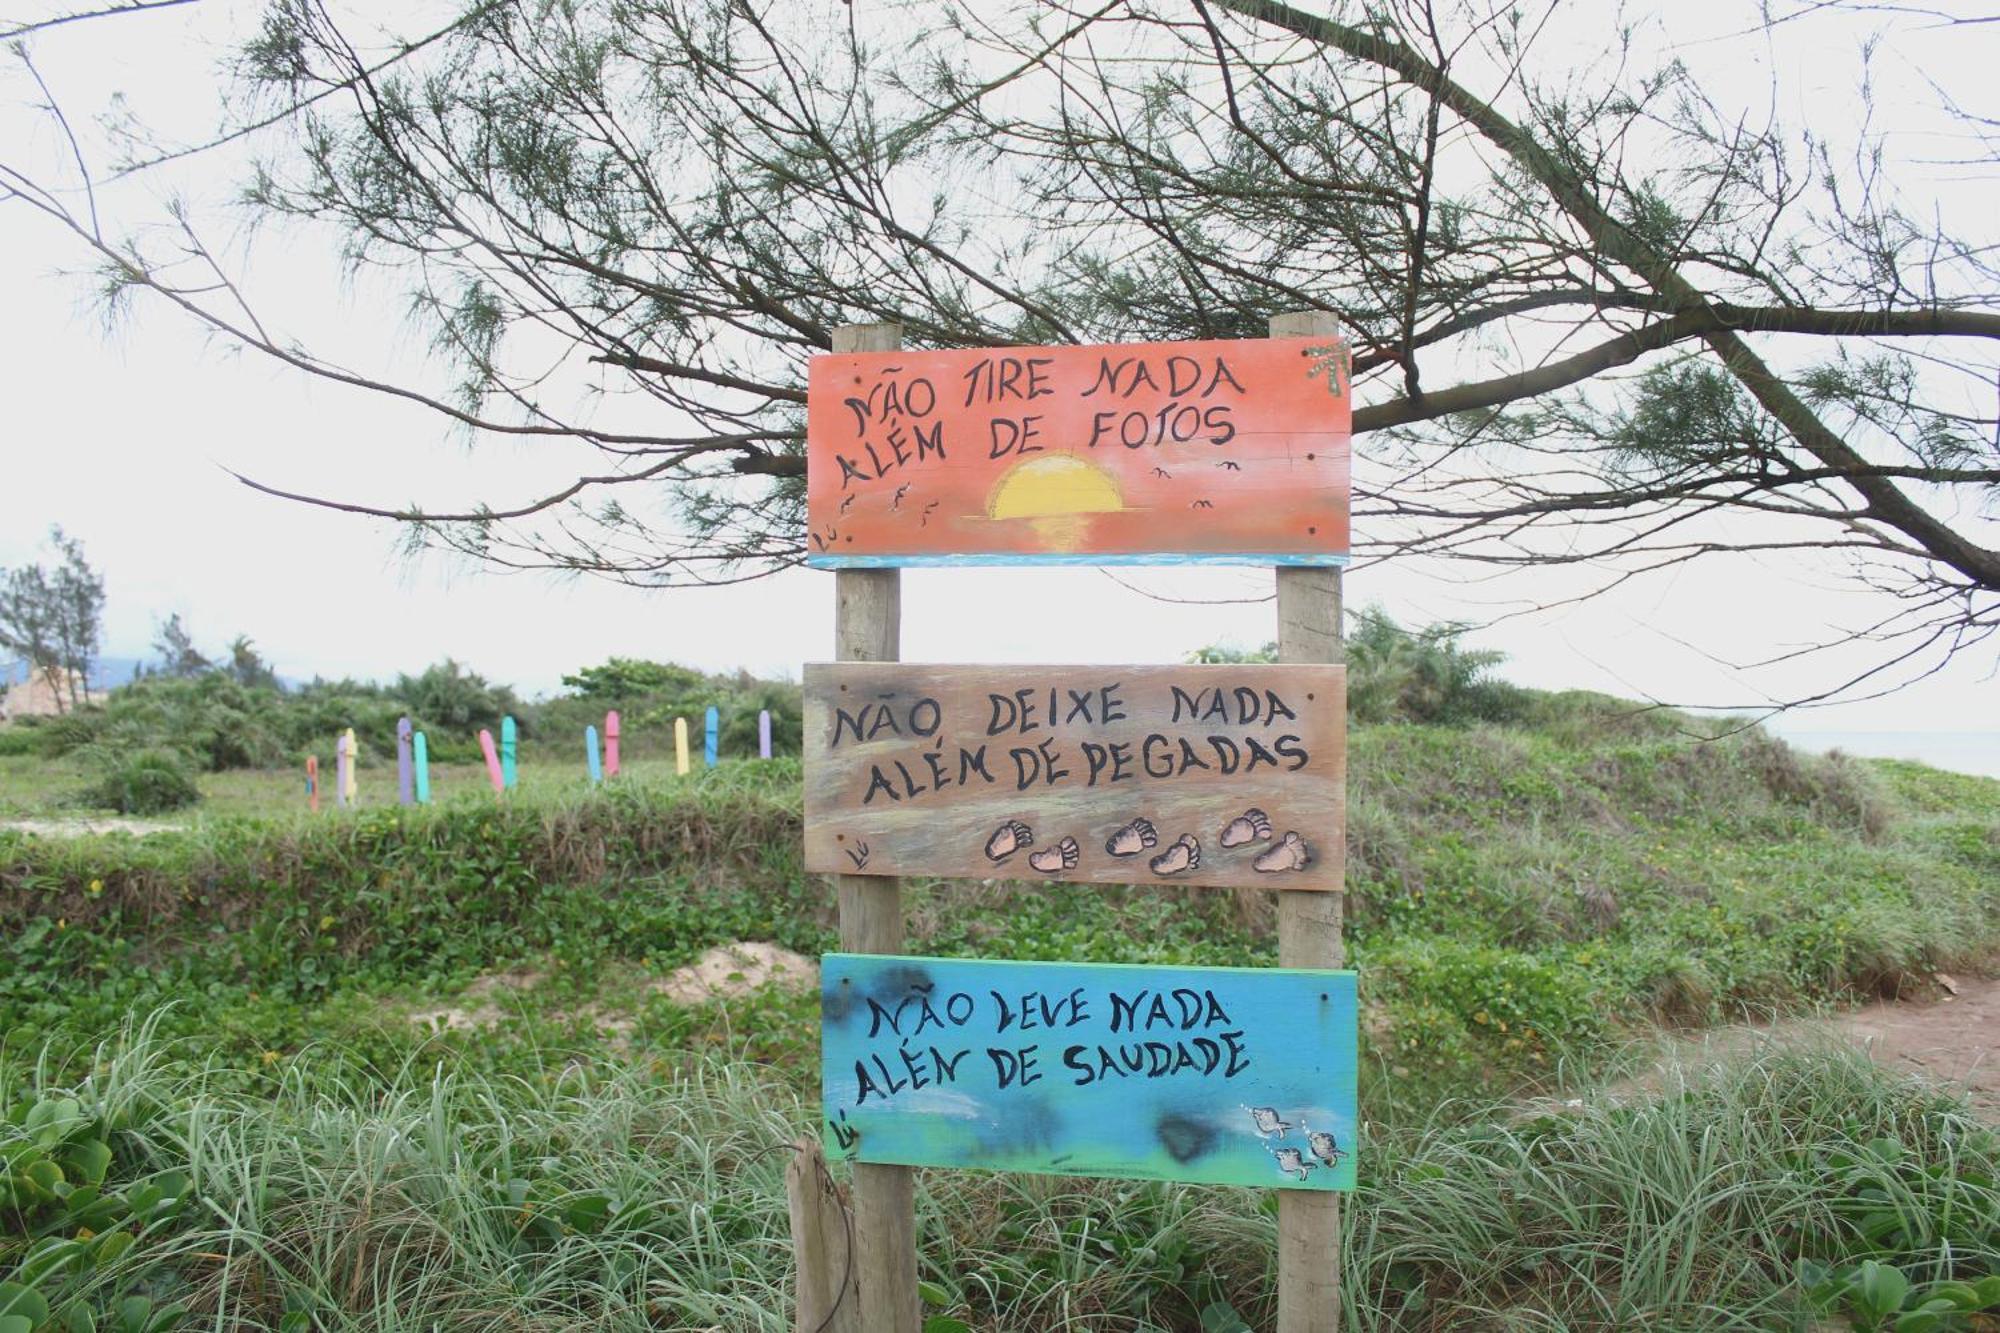 NÃO TIRE NADA
ALÉM DE FOTOS
LÚ
NÃO DEIXE NADA
ALÉM DE PEGADAS
LÚ
NÃO LEVE NADA
ALÉM DE SAUDADE
LÚ